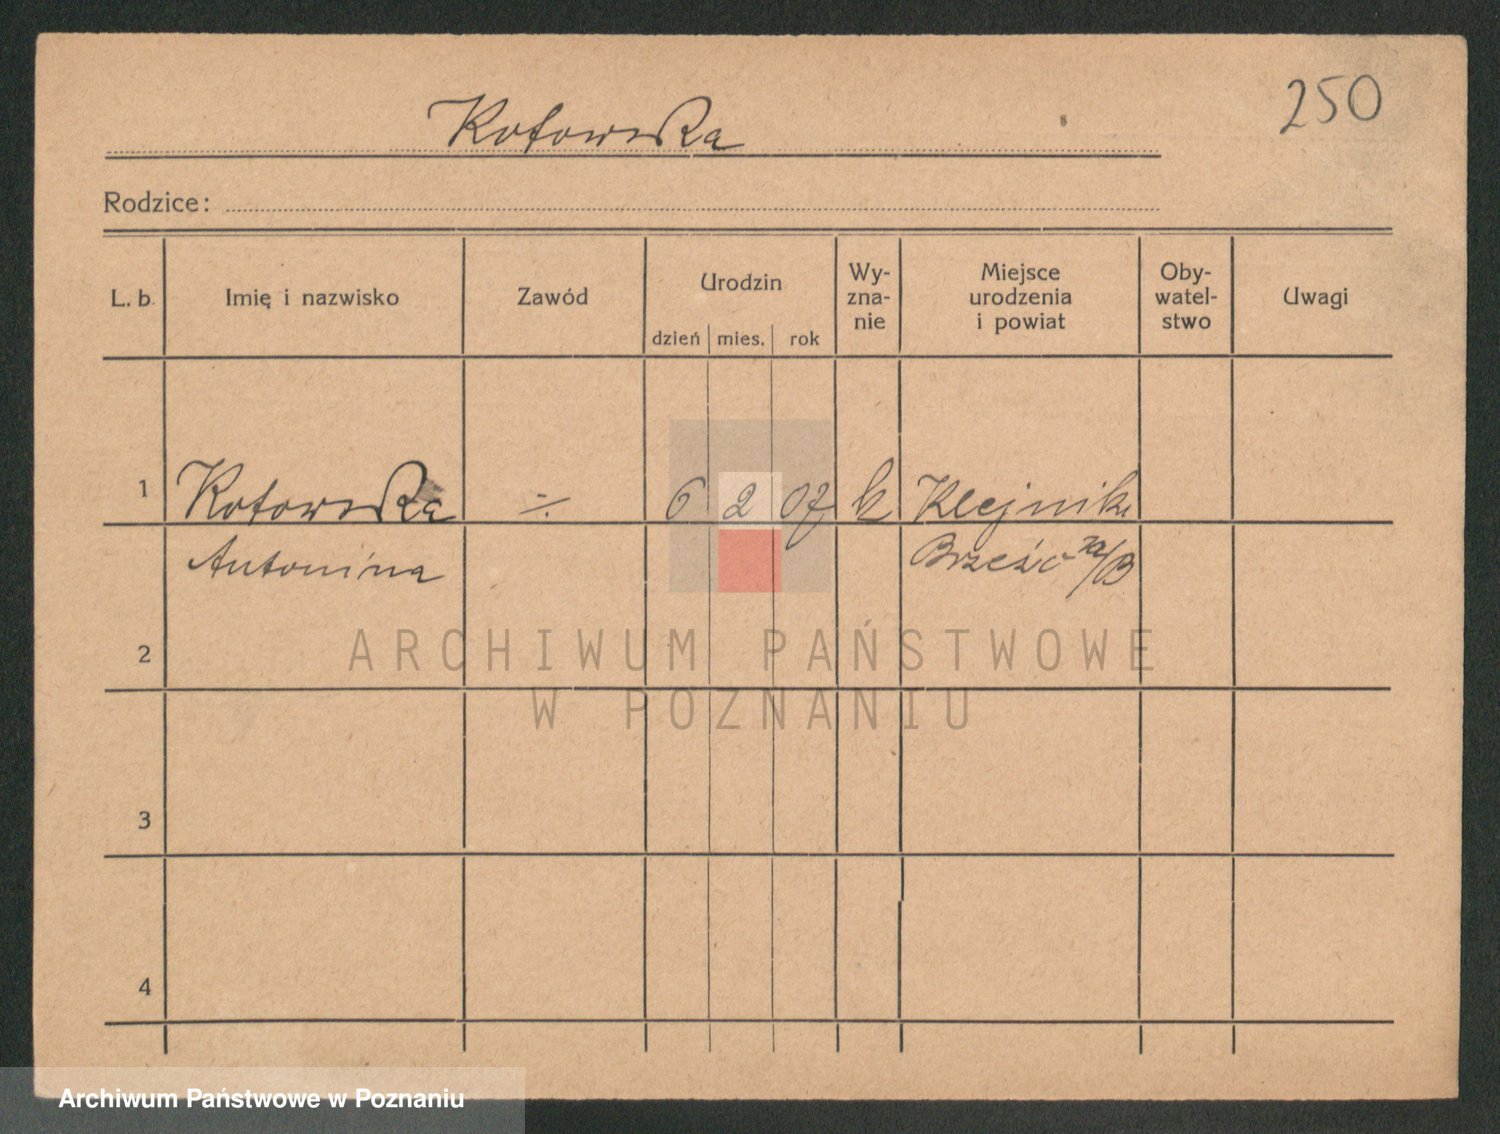 250
Kotowska
Rodzice:
L. b. Imię i nazwisko Zawód Urodzin dzień mies. rok Wy-zna-nie Miejsce urodzenia i powiat Oby-watel-stwo Uwagi
1 Kotowska ÷ 6 2 07 k Klejnik
Antonina Brześć n/B
2
3
4
ARCHIWUM PAŃSTWOWE
W POZNANIU
Archiwum Państwowe w Poznaniu